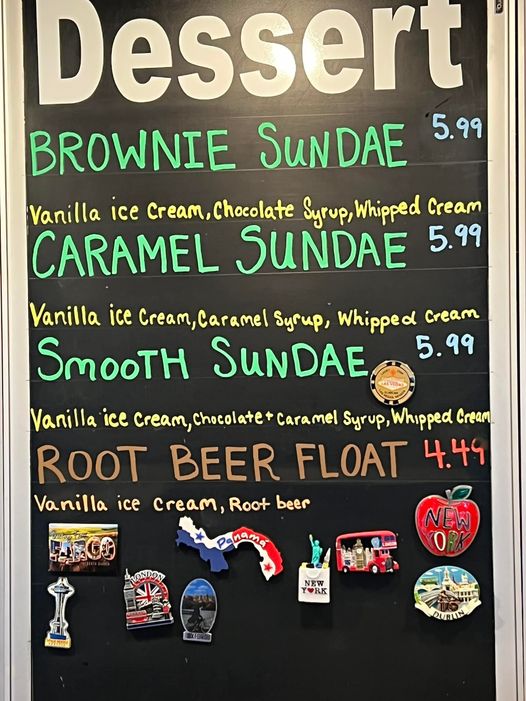 Dessert
BROWNIE SUNDAE 5.99
Vanilla ice Cream, Chocolate Syrup, Whipped Cream
CARAMEL SUNDAE 5.99
Vanilla ice Cream, Caramel Syrup, Whipped Cream
SmooTH SUNDAE 5.99
LAS VEGAS
Vanilla ice Cream, Chocolate + Caramel Syrup, Whipped Cream
ROOT BEER FLOAT 4.49
Vanilla ice cream, Root beer
NEW YORK
FARGO
Panamá
LONDON
NEW
YORK
DUBLIN